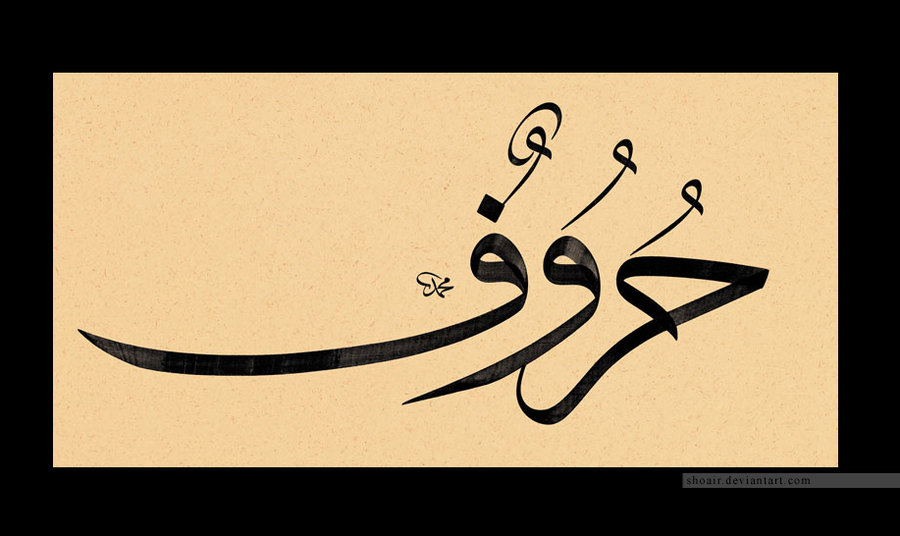 حُرُوُفٌ
محمد
shoair.deviantart.com